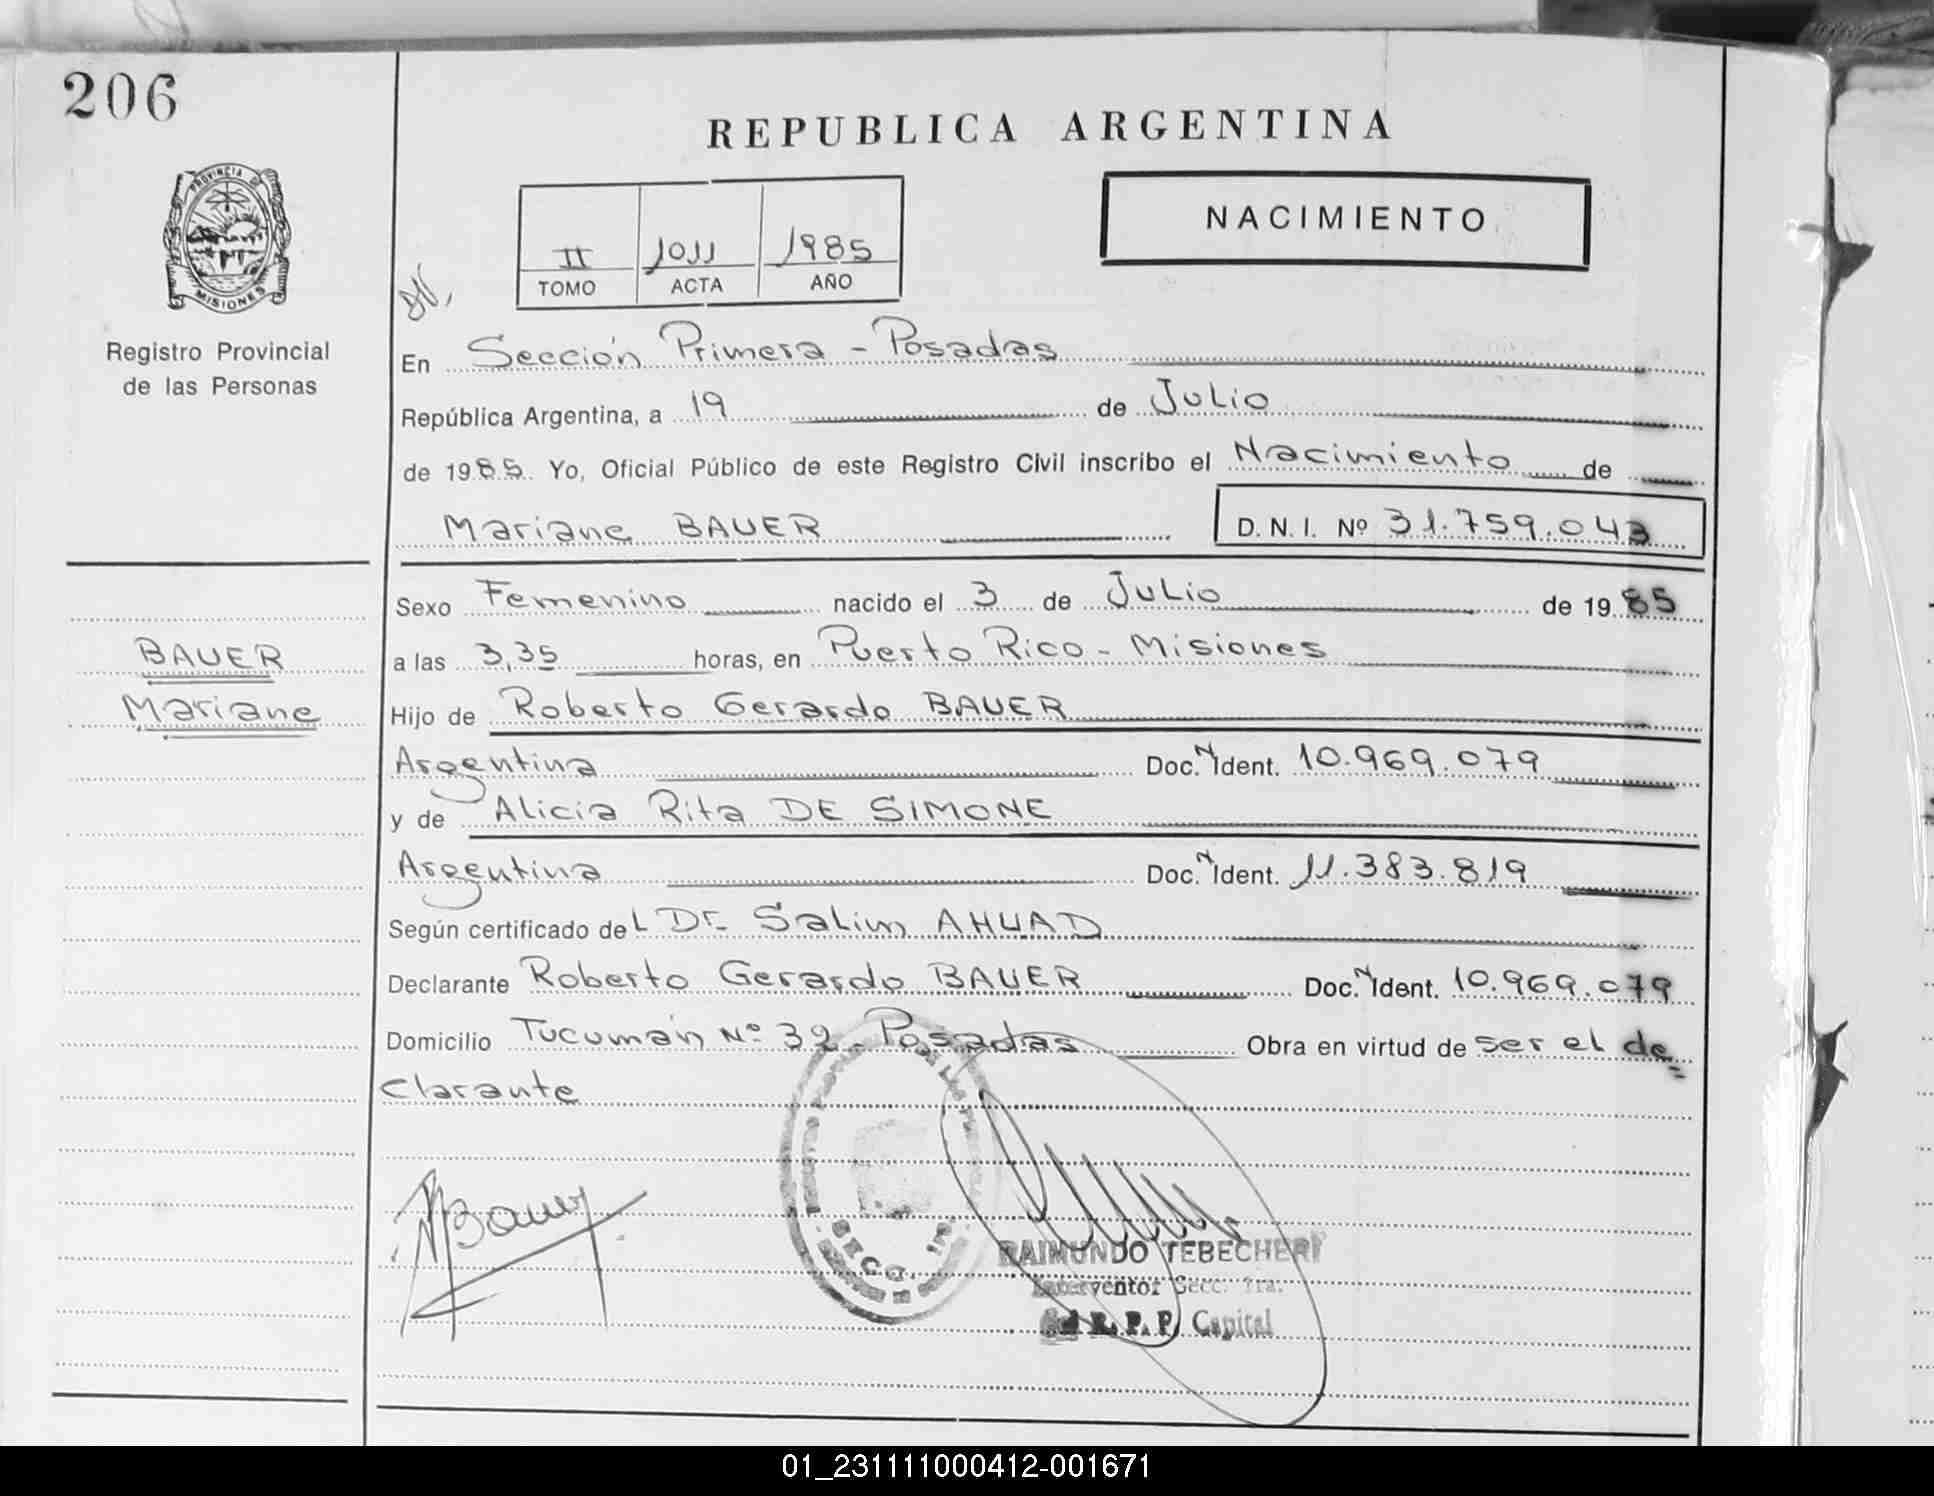 206
REPUBLICA ARGENTINA
PROVINCIA DE
MISIONES
Registro Provincial
de las Personas
II 1011 1985
TOMO ACTA AÑO
NACIMIENTO
En Sección Primera - Posadas
República Argentina, a 19 de Julio
de 1985. Yo, Oficial Público de este Registro Civil inscribo el Nacimiento de
Mariane BAUER D. N. I. Nº 31.759.043
Sexo Femenino nacido el 3 de Julio de 1985
BAUER
Mariane
a las 3,35 horas, en Puerto Rico - Misiones
Hijo de Roberto Gerardo BAUER
Argentina Doc. N Ident. 10.969.079
y de Alicia Rita DE SIMONE
Argentina Doc. N Ident. 11.383.819
Según certificado del Dr. Salim AHUAD
Declarante Roberto Gerardo BAUER Doc. N Ident. 10.969.079
Domicilio Tucumán Nº 32 - Posadas Obra en virtud de ser el de=
clarante
Bauer
SECC.
RAIMUNDO TEBECHERI
Interventor Secc. 1ra.
R. P. P. Capital
01_231111000412-001671